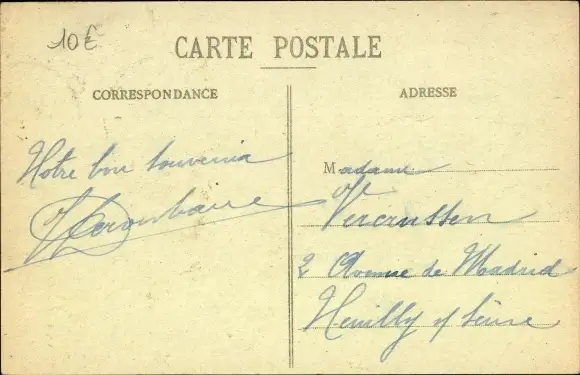 10€
CARTE POSTALE
CORRESPONDANCE
ADRESSE
Notre bon souvenir
Madame
Vercrussen
2 Avenue de Madrid
Neuilly s/ Seine